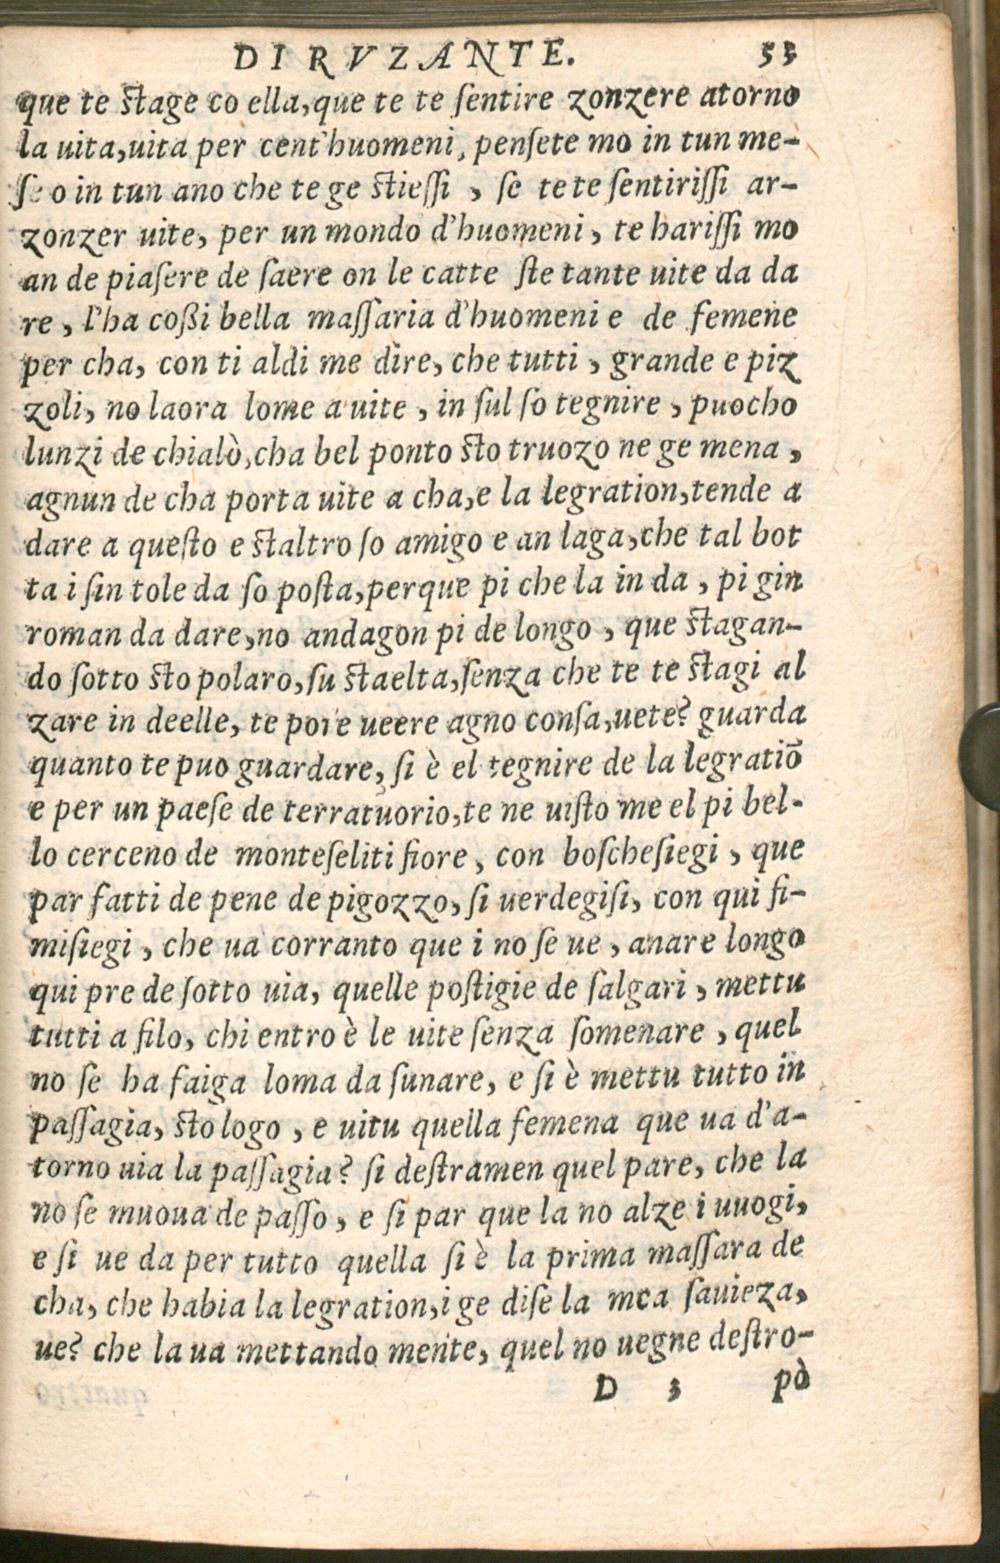 DI RVZANTE. 53
que te stage co ella, que te te sentire zonzere atorno
la uita, uita per cent'huomeni, pensete mo in tun me-
se o in tun ano che te ge stiessi, se te te sentirissi ar-
zonzer uite, per un mondo d'huomeni, te harissi mo
an de piasere de saere on le catte ste tante uite da da
re, l'ha coßi bella massaria d'huomeni e de femene
per cha, con ti aldi me dire, che tutti, grande e piz
zoli, no laora lome a uite, in sul so tegnire, puocho
lunzi de chialò, cha bel ponto sto truozo ne ge mena,
agnun de cha porta uite a cha, e la legration, tende a
dare a questo e staltro so amigo e an laga, che tal bot
ta i sin tole da so posta, perque pi che la in da, pi gin
roman da dare, no andagon pi de longo, que stagan-
do sotto sto polaro, su staelta, senza che te te stagi al
zare in deelle, te pore ueere agno consa, uete? guarda
quanto te puo guardare, si è el tegnire de la legratiõ
e per un paese de terratuorio, te ne uisto me el pi bel-
lo cerceno de monteseliti fiore, con boschesiegi, que
par fatti de pene de pigozzo, si uerdegisi, con qui fi-
misiegi, che ua corranto que i no se ue, anare longo
qui pre de sotto uia, quelle postigie de salgari, mettu
tutti a filo, chi entro è le uite senza somenare, quel
no se ha faiga loma da sunare, e si è mettu tutto in
passagia, sto logo, e uitu quella femena que ua d'a-
torno uia la passagia? si destramen quel pare, che la
no se muoua de passo, e si par que la no alze i uuogi,
e si ue da per tutto quella si è la prima massara de
cha, che habia la legration, i ge dise la mea sauieza,
ue? che la ua mettando mente, quel no uegne destro-
D 3 pò